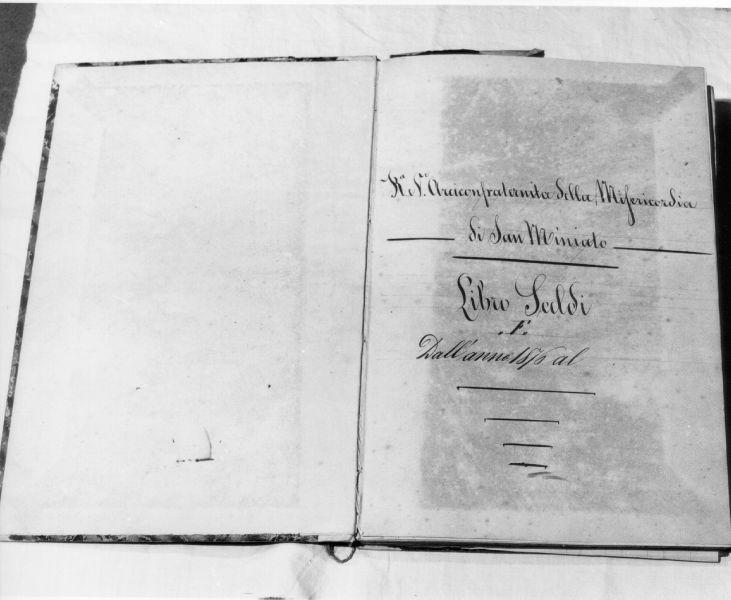 Vᵉ Arciconfraternita della Misericordia
di San Miniato
Libro Saldi
F.
Dall'anno 1876 al